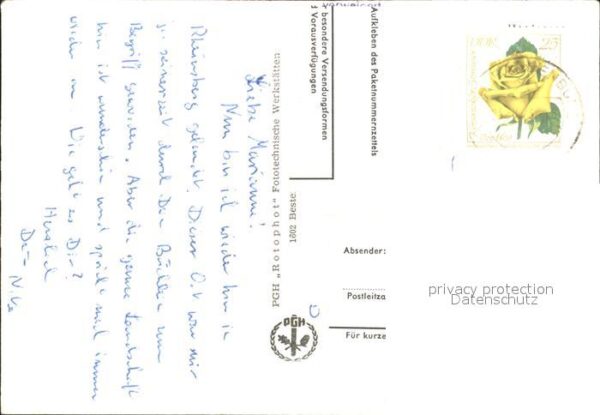 Liebe Marianne!
Nun bin ich wieder hier in
Rheinsberg gelandet. Dieser Ort war mir
ja seinerzeit durch Das Büchlein zum
Begriff geworden. Aber die ganze Landschaft
hier ist wunderschön und spricht mich immer
wieder an. Wie geht es Dir?
Herzlich
PGH „Rotophot" Fototechnische Werkstätten
1602 Beste
PGH
besondere Versendungsformen
Vorausverfügungen
Aufkleben des Paketnummernzettels
DDR 25
Absender:
Postleitza
Für kurze
privacy protection
Datenschutz